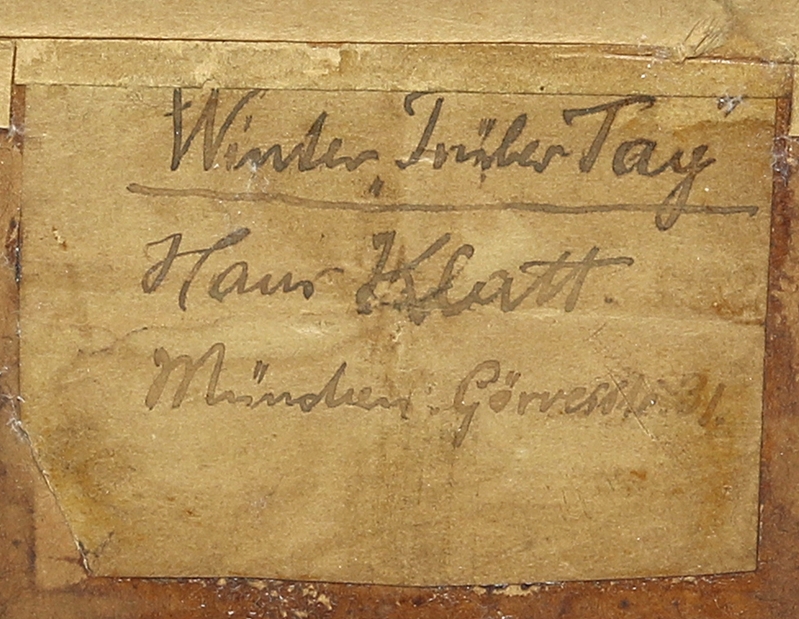 Winter „Trüber Tag"
Hans Klatt.
München. Görresstr. 31.